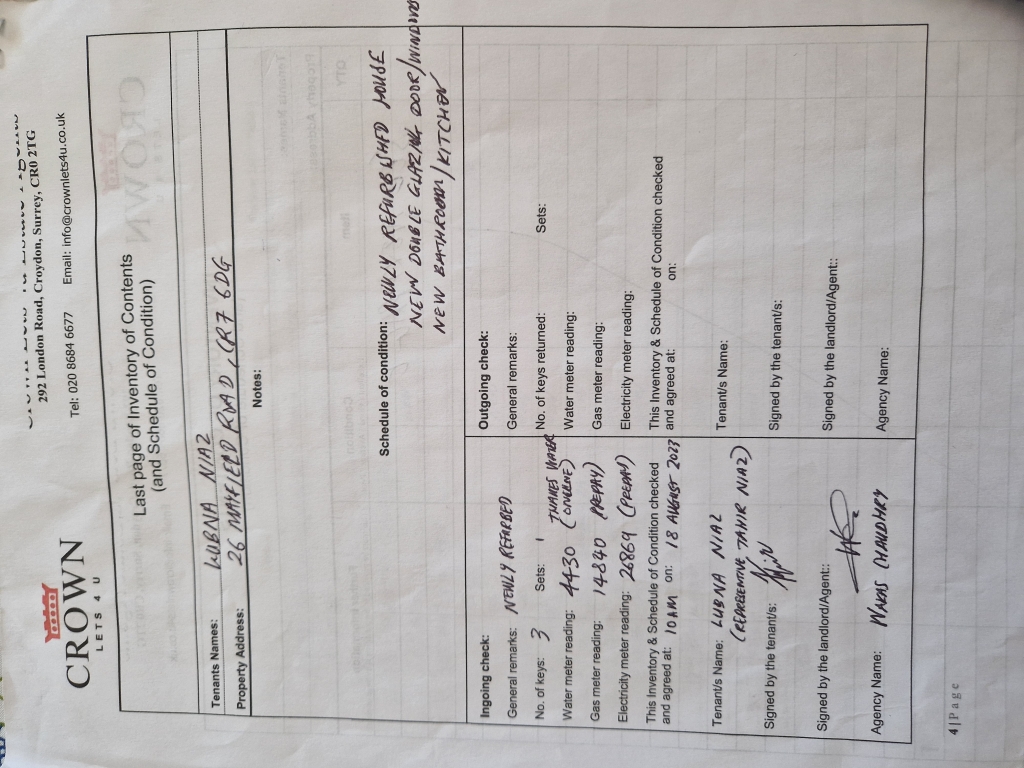 CROWN
LETS 4 U
Crown Lets 4u Estate Agents
292 London Road, Croydon, Surrey, CR0 2TG
Tel: 020 8684 6677 Email: info@crownlets4u.co.uk
Last page of Inventory of Contents
(and Schedule of Condition)
Tenants Names: LUBNA NIAZ
Property Address: 26 MAYFIELD ROAD, CR7 6DG
Notes:
Schedule of condition: NEWLY REFURBISHED HOUSE
NEW DOUBLE GLAZING DOOR/WINDOWS
NEW BATHROOM/KITCHEN
Ingoing check:
General remarks: NEWLY REFURBED
No. of keys: 3 Sets: 1
Water meter reading: 4430 THAMES WATER (ONLINE)
Gas meter reading: 14840 (PREPAY)
Electricity meter reading: 26869 (PREPAY)
This Inventory & Schedule of Condition checked
and agreed at: 10AM on: 18 AUGUST 2023
Tenant/s Name: LUBNA NIAZ
(REPRESENTATIVE TAHIR NIAZ)
Signed by the tenant/s:
Signed by the landlord/Agent::
Agency Name: WAQAS CHAUDHRY
Outgoing check:
General remarks:
No. of keys returned: Sets:
Water meter reading:
Gas meter reading:
Electricity meter reading:
This Inventory & Schedule of Condition checked
and agreed at: on:
Tenant/s Name:
Signed by the tenant/s:
Signed by the landlord/Agent::
Agency Name:
4 | Page